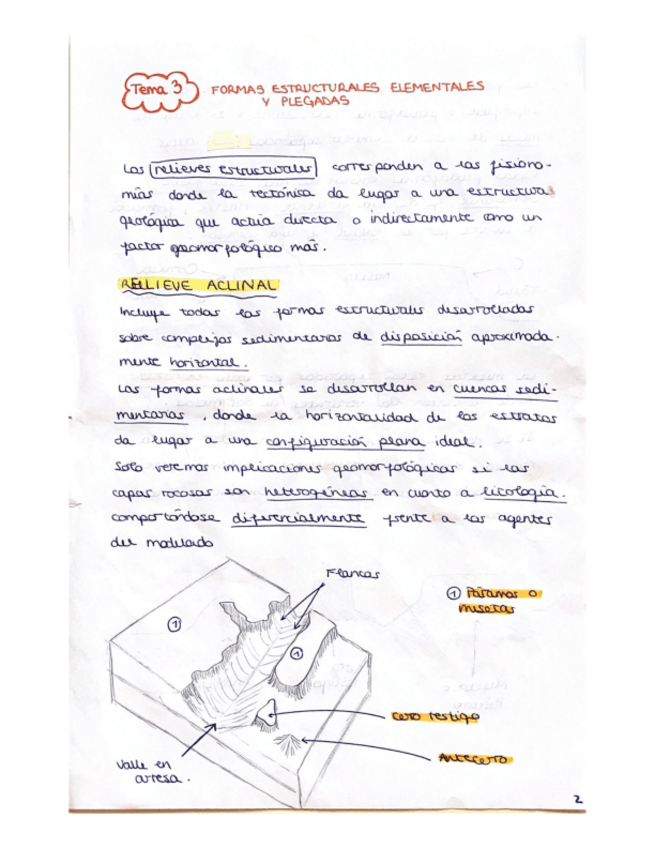 Tema 3
FORMAS ESTRUCTURALES ELEMENTALES
Y PLEGADAS
Los relieves estructurales corresponden a las fisiono-
mías donde la tectónica da lugar a una estructura
geológica que actúa directa o indirectamente como un
factor geomorfológico más.
RELIEVE ACLINAL
Incluye todas las formas estructurales desarrolladas
sobre complejos sedimentarios de disposición aproximada-
mente horizontal.
Las formas aclinales se desarrollan en cuencas sedi-
mentarias, donde la horizontalidad de los estratos
da lugar a una configuración plana ideal.
Solo veremos implicaciones geomorfológicas si las
capas rocosas son heterogéneas en cuanto a litología.
comportándose diferencialmente frente a los agentes
del modelado
Flancos
① Páramos o
mesetas
①
①
Cerro testigo
Valle en
artesa.
Antecerro
2